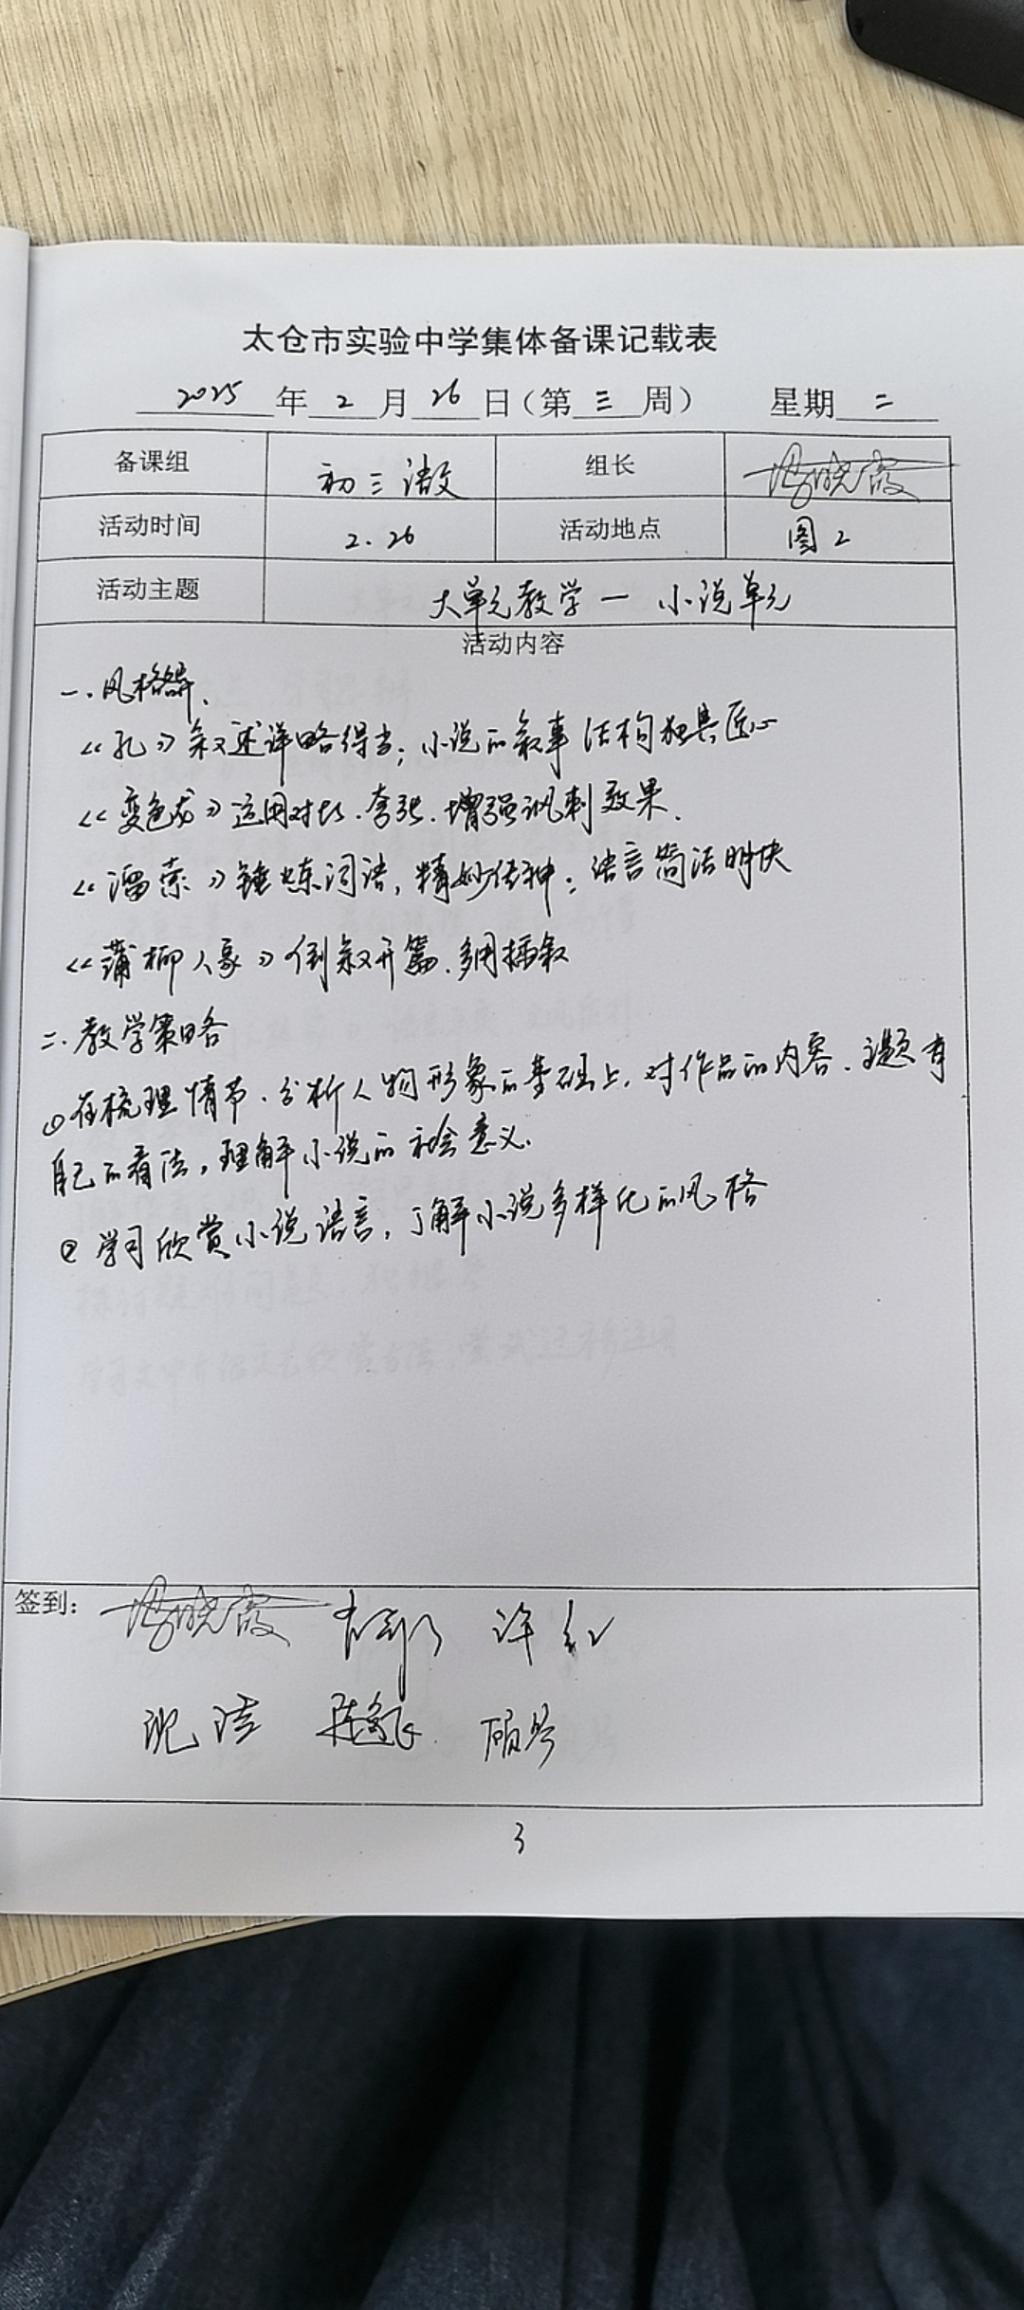 太仓市实验中学集体备课记载表
2025年2月26日（第三周） 星期二
备课组 初三语文 组长
活动时间 2.26 活动地点 图2
活动主题 大单元教学一 小说单元
活动内容
一.风格
《孔》叙述详略得当；小说的叙事结构独具匠心
《变色龙》运用对比.夸张.增强讽刺效果.
《溜索》锤炼词语，精妙传神；语言简洁明快
《蒲柳人家》倒叙开篇.多用插叙
二.教学策略
①在梳理情节.分析人物形象的基础上，对作品的内容.主题有
自己的看法，理解小说的社会意义.
②学习欣赏小说语言，了解小说多样化的风格
签到： 许红
沈洁 顾琴
3